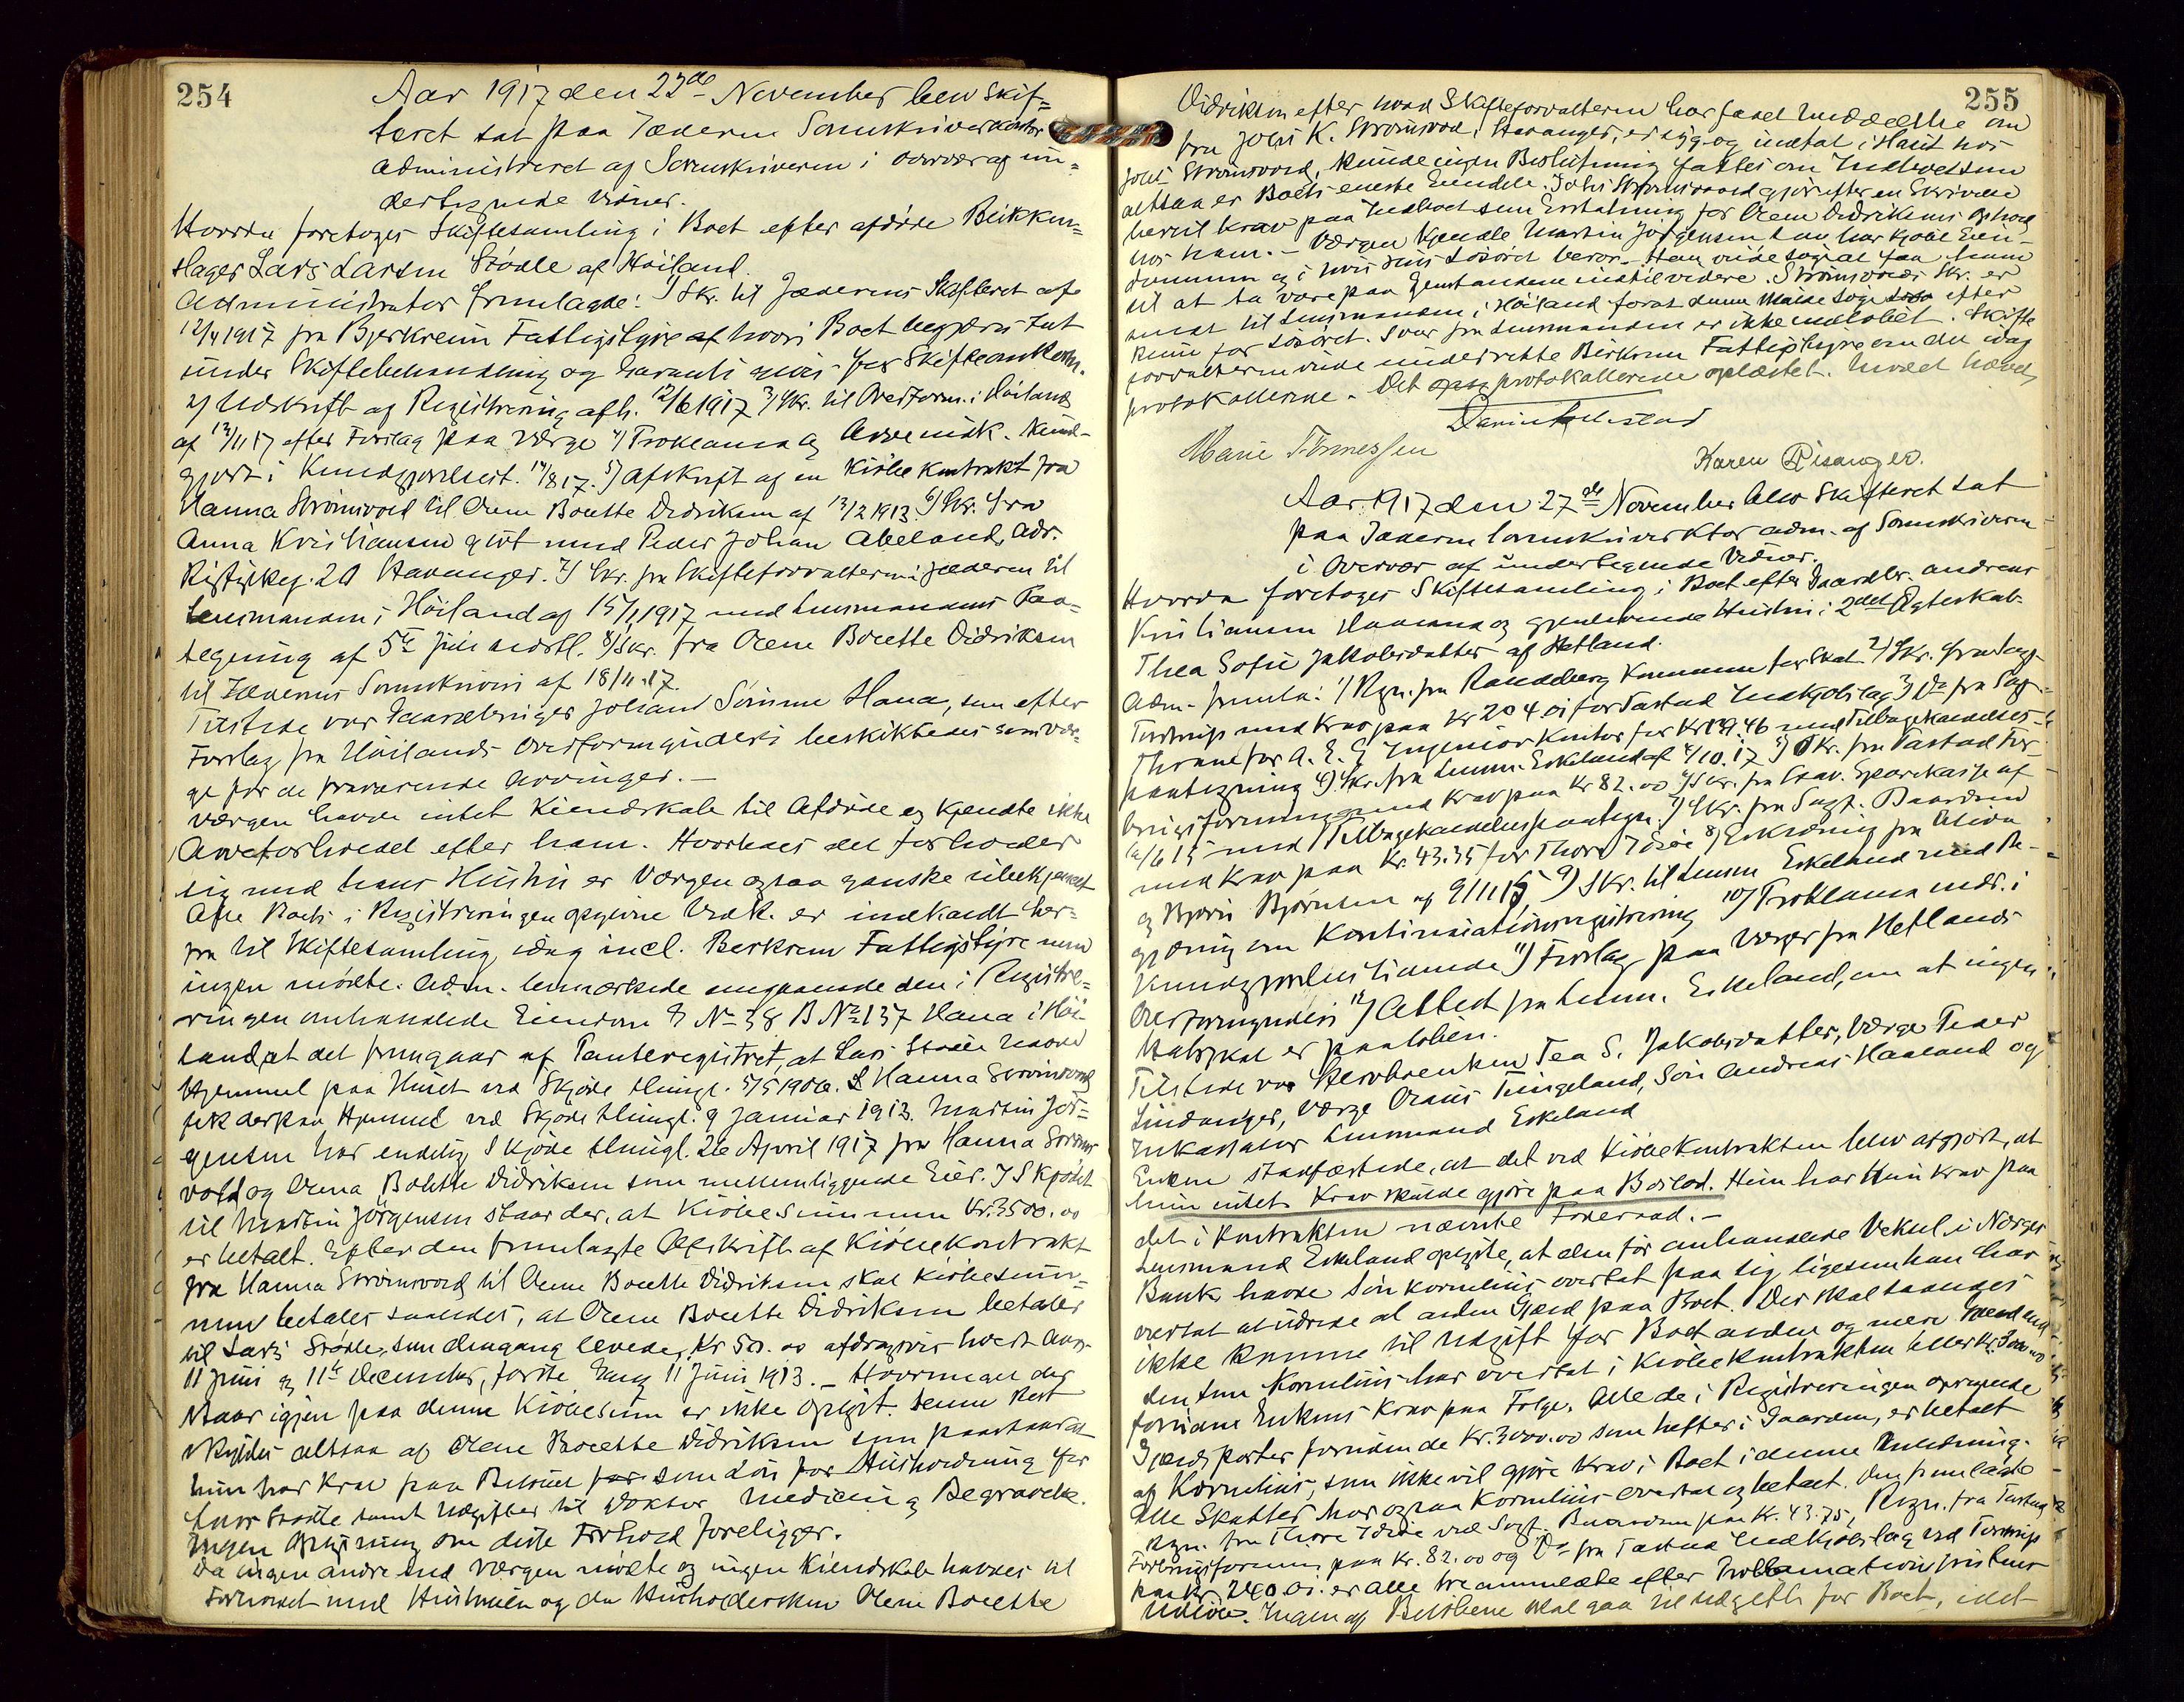 254
Aar 1917 den 22de November blev Skif=
teret sat paa Jæderens Sorenskriverkontor
administreret af Sorenskriveren i Overvær af un=
dertegnede Vidner.
Hvorda foretoges Skiftesamling i Boet efter afdøde Blikken=
slager Lars Larsen Stødle af Høiland.
Administrator fremlagde: 1) Skr. til Jæderens Skifteret af
12/4 1917 fra Bjerkreim Fattigstyre af hvori Boet begjæres tat
under Skiftebehandling og Garanti gives for Skifteomkostn.
2) Udskrift af Registrering afh. 12/6 1917 3) Skr. til Overform. i Høiland
af 13/11 17 efter Forslag paa Værge 4) Proklama og Arveindk. kund-
gjort i Kundgjørelsest. 14/8 17. 5) Afskrift af en Kjøbekontrakt fra
Hanna Strømsvold til Olene Bolette Didriksen af 13/2 1913. 6) Skr. fra
Anna Kristiansen givt med Peder Johan Abeland, Adr.
20 Stavanger. 7) Skr. fra Skifteforvalteren i Jæderen til
Lensmanden i Høiland af 15/1 1917 med Lensmandens Paa=
tegning af 5te Juli næstl. 8) Skr. fra Olene Bolette Didriksen
til Jæderens Sorenskriveri af 18/11 17.
Tilstede var Gaardbruger Johan Sømme Hana, som efter
Forslag fra Høilands Overformynderi beskikkedes som Vær=
ge for de fraværende Arvinger.—
Værgen havde intet Kjendskab til Afdøde og kjendte ikke
Arveforholdet efter ham. Hvorledes det forholder
sig med hans Hustru er Værgen ogsaa ganske ubekjendt
Alle Boets i Registreringen opgivne Vedk. er indkaldt her=
fra til Skiftesamling idag incl. Berkrem Fattigstyre men
ingen mødte. Adm. bemærkede angaaende den i Registre=
ringen omhandlede Eiendom G No 38 B No 137 Hana i Høi
land, at det fremgaar af Panteregistret, at Lars Stødle havde
Hjemmel paa Huset ved Skjøde thingl. 5/5 1906. Hanna Strømsvold
fik derpaa Hjemmel ved Skjøde thingl. 9 Januar 1913. Martin Jør=
gensen har endelig Skjøde thingl. 26 April 1917 fra Hanna Strøms
vold og Olena Bolette Didriksen som mellemliggende Eier. I Skjødet
til Martin Jørgensen staar der, at Kjøbesummen Kr. 3500.00
er betalt. Efter den fremlagte Afskrift af Kjøbekontrakt
fra Hanna Strømsvold til Olene Bolette Didriksen skal Kjøbesum=
men betales saaledes, at Olene Bolette Didriksen betaler
til Lars Stødle, som dengang levede, Kr. 50.00 afdragsvis hvert Aar
11 Juni og 11te December, første Gang 11 Juni 1913.— Hvormeget der
staar igjen paa denne Kjøbesum er ikke opgivet. Denne Rest
skyldes altsaa af Olene Bolette Didriksen som paastaar at
hun har Krav paa Beløbet for som Løn for Husholdning for
Lars Stødle samt Udgifter til Doktor, Medicin og Begravelse.
Ingen Oplysning om dette Forhold foreligger.
Da ingen andre end Værgen mødte og ingen Kjendskab havdes til
Forholdet med Hustruen og da Husholdersken Olene Bolette
255
Didriksen efter hvad Skifteforvalteren har faaet Meddelelse om
fra Johs K. Strømsvold, Stavanger, er syg og indtat i Huset hos
Johs Strømsvold, kunde ingen Beslutning fattes om Indboet som
altsaa er Boets eneste Eiendele. Johs Strømsvold gjør efter en Skrivelse
hertil Krav paa Indboet som Erstatning for Olene Didriksens Ophold
hos ham.— Værgen kjendte Martin Jørgensen som har kjøbt Eien-
dommen og i hvis Hus Løsøret beror. Han vilde søge at faa ham
til at ta vare paa Gjenstandene indtil videre. Strømsvolds Skr. er
sendt til Lensmanden i Høiland forat denne maatte søge efter
Rum for Løsøret. Svar fra Lensmanden er ikke indløbet. Skifte
forvalteren vilde underrette Birkrem Fattigstyre om det idag
protokollerede. Det protokollerede oplæstet. Mødet hævet
Marie Tønnessen
Karen Risanger.
Aar 1917 den 27de November blev Skifteret sat
paa Jæderens Sorenskriverktor adm. af Sorenskriveren
i Overvær af undertegnede Vidner.
Hvorda foretoges Skiftesamling i Boet efter Gaardbr. Andreas
Kristiansen Haaland og gjenlevende Hustru i 2det Ægteskab
Thea Sofie Jakobsdatter af Hetland.
Adm. freml.: 1) Regn. fra Randeberg Kommune for Skat 2) Skr. fra Sagf.
Torstrup med Krav paa Kr 204.01 for Tastad Indkjøbslag 3) Do fra Sagf.
Thrane for A. E. G Ingeniør Kontor for Kr 139.46 med Tilbagekaldelses-
paategning 4) Skr. fra Lensm. Eskeland af 4/10.17 5) Skr. fra Tastad For
brugsforening med Krav paa Kr 82.00 6) Skr. fra Stav. Sparekasse af
16/6 15 med Tilbagekaldelsespaategn. 7) Skr. fra Sagf. Baardsen
med Krav paa Kr. 43.75 for Thore Idsøe 8) Erklæring fra Alida
og Bjørn Bjørnsen af 9/11 15 9) Skr. til Lensm. Eskeland med Be-
gjæring om Kontinuationsregistrering 10) Proklama indr. i
Kundgjørelsestidende 11) Forslag paa Værger fra Hetlands
Overformynderi 12) Attest fra Lensm. Eskeland, om at ingen
Halvskat er paaløben.
Tilstede var Arvebrenken Tea S. Jakobsdatter, Værge Peder
Lindanger, Værge Olaus Tingeland, Søn Andreas Haaland og
Inkassator Lensmand Eskeland
Enken stadfæstede, at det ved Kjøbekontrakten blev afgjort, at
hun intet Krav skulde gjøre paa Boslod. Hun har kun Krav paa
det i Kontrakten nævnte Foderaad.—
Lensmand Eskeland opgjste, at den før omhandlede Veksel i Norges
Bank havde Søn Kornelius overtat paa sig ligesom han har
overtat at udrede al anden Gjæld paa Boet. Der skal saaledes
ikke komme til Udgift for Boet anden og mere Gjæld end
den som Kornelius har overtat i Kjøbekontrakten eller Kr. 3000.00
foruden Enkens Krav paa Folge. Alle de i Registreringen opregnede
Gjældsposter foruden de Kr. 3000.00 som hefter i Gaarden, er betalt
af Kornelius, som ikke vil gjøre Krav i Boet i denne Anledning.
Alle Skatter har ogsaa Kornelius overtat og betalt. Den fremlagte
Regn. fra Thore Idsøe ved Sagf. Baardsen paa Kr. 43.75, Regn. fra Tastad
Forbrugsforening paa Kr. 82.00 og Do fra Tastad Indkjøbslag ved Torstrup
paa Kr 240.01. er alle tre anmeldte efter Proklamationsfristens
Udløb. Ingen af Beløbene skal gaa til Udgift for Boet, idet